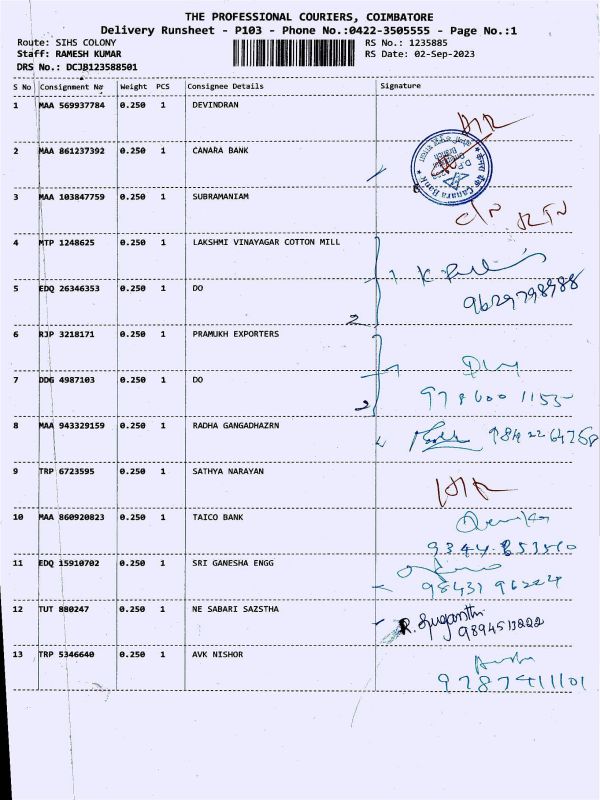 THE PROFESSIONAL COURIERS, COIMBATORE
Delivery Runsheet - P103 - Phone No.:0422-3505555 - Page No.:1
Route: SIHS COLONY RS No.: 1235885
Staff: RAMESH KUMAR RS Date: 02-Sep-2023
DRS No.: DCJB123588501
S No Consignment No Weight PCS Consignee Details Signature
1 MAA 569937784 0.250 1 DEVINDRAN
2 MAA 861237392 0.250 1 CANARA BANK
Canara Bank
3 MAA 103847759 0.250 1 SUBRAMANIAM
4 MTP 1248625 0.250 1 LAKSHMI VINAYAGAR COTTON MILL
5 EDQ 26346353 0.250 1 DO
2
6 RJP 3218171 0.250 1 PRAMUKH EXPORTERS
7 DDG 4987103 0.250 1 DO
978600 1155
2
8 MAA 943329159 0.250 1 RADHA GANGADHAZRN
9 TRP 6723595 0.250 1 SATHYA NARAYAN
10 MAA 860920823 0.250 1 TAICO BANK
11 EDQ 15910702 0.250 1 SRI GANESHA ENGG
98431 96224
12 TUT 880247 0.250 1 NE SABARI SAZSTHA
R. Suganthi
13 TRP 5346640 0.250 1 AVK NISHOR
9787411101